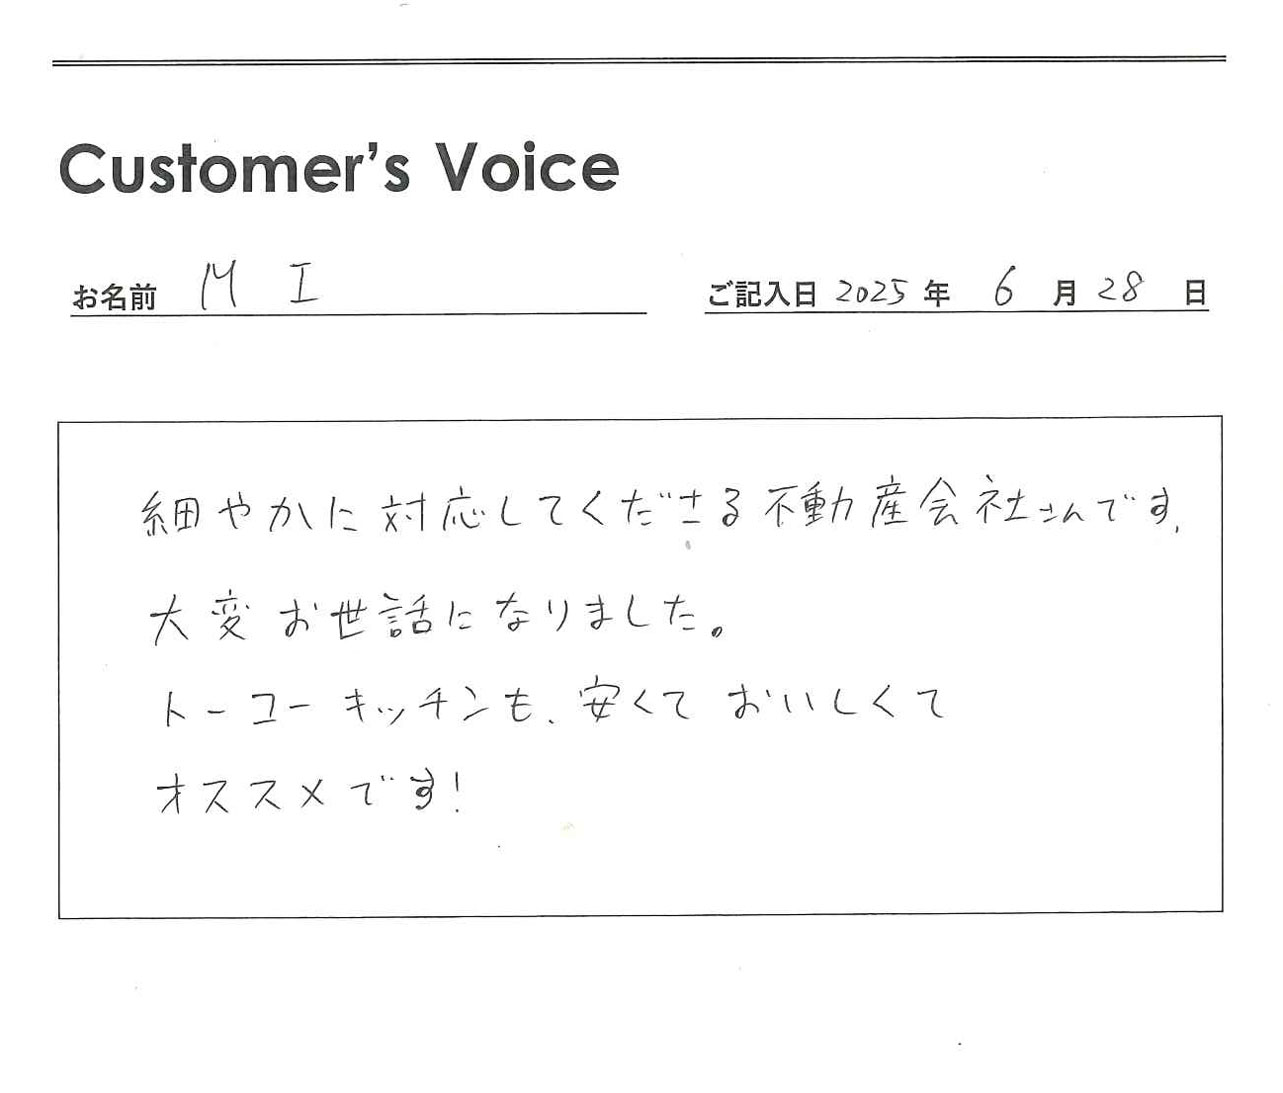 Customer's Voice
お名前 M I
ご記入日 2025 年 6 月 28 日
細やかに対応してくださる不動産会社さんです、
大変お世話になりました。
トーコーキッチンも、安くておいしくて
オススメです!